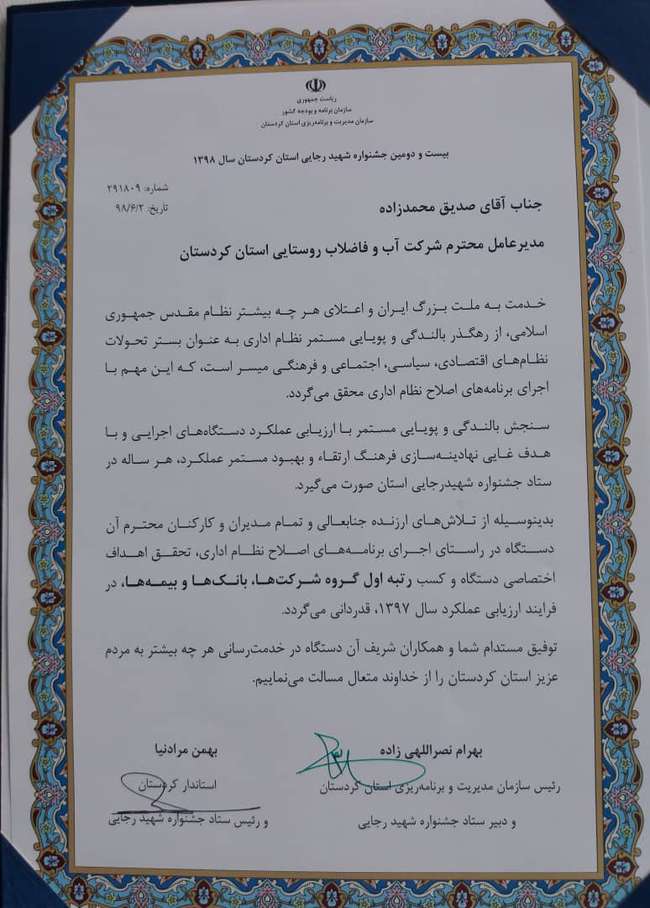 ریاست جمهوری
سازمان برنامه و بودجه کشور
سازمان مدیریت و برنامه‌ریزی استان کردستان
بیست و دومین جشنواره شهید رجایی استان کردستان سال ۱۳۹۸
شماره: ۲۹۱۸۰۹
تاریخ: ۹۸/۶/۲
جناب آقای صدیق محمدزاده
مدیرعامل محترم شرکت آب و فاضلاب روستایی استان کردستان
خدمت به ملت بزرگ ایران و اعتلای هر چه بیشتر نظام مقدس جمهوری
اسلامی، از رهگذر بالندگی و پویایی مستمر نظام اداری به عنوان بستر تحولات
نظام‌های اقتصادی، سیاسی، اجتماعی و فرهنگی میسر است، که این مهم با
اجرای برنامه‌های اصلاح نظام اداری محقق می‌گردد.
سنجش بالندگی و پویایی مستمر با ارزیابی عملکرد دستگاه‌های اجرایی و با
هدف غایی نهادینه‌سازی فرهنگ ارتقاء و بهبود مستمر عملکرد، هر ساله در
ستاد جشنواره شهیدرجایی استان صورت می‌گیرد.
بدینوسیله از تلاش‌های ارزنده جنابعالی و تمام مدیران و کارکنان محترم آن
دستگاه در راستای اجرای برنامه‌های اصلاح نظام اداری، تحقق اهداف
اختصاصی دستگاه و کسب رتبه اول گروه شرکت‌ها، بانک‌ها و بیمه‌ها، در
فرایند ارزیابی عملکرد سال ۱۳۹۷، قدردانی می‌گردد.
توفیق مستدام شما و همکاران شریف آن دستگاه در خدمت‌رسانی هر چه بیشتر به مردم
عزیز استان کردستان را از خداوند متعال مسالت می‌نماییم.
بهرام نصراللهی زاده
رئیس سازمان مدیریت و برنامه‌ریزی استان کردستان
و دبیر ستاد جشنواره شهید رجایی
بهمن مرادنیا
استاندار کردستان
و رئیس ستاد جشنواره شهید رجایی